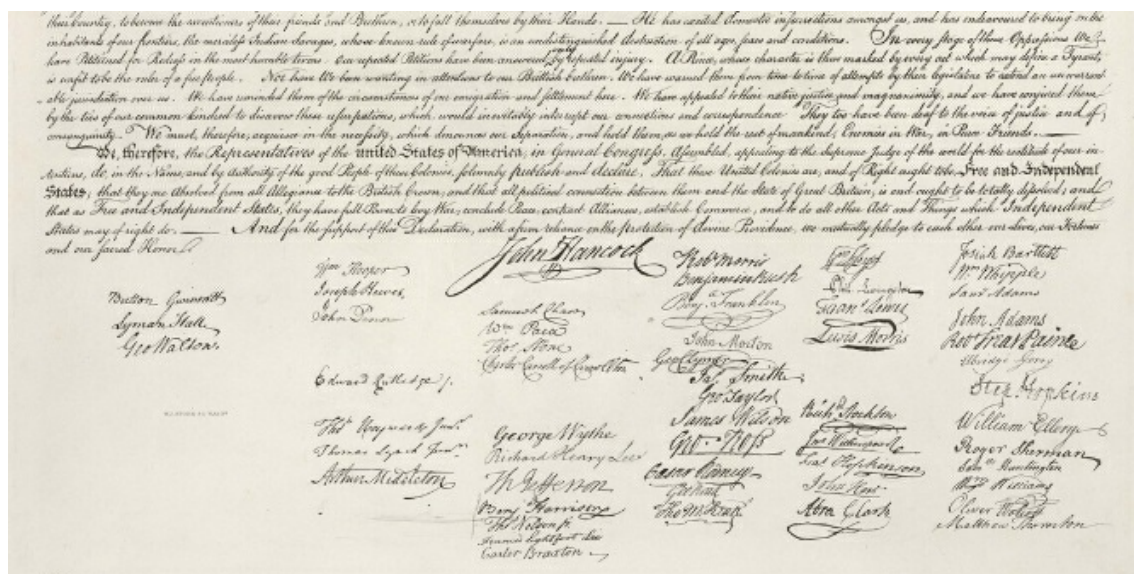 their Country, to become the executioners of their friends and Brethren, or to fall themselves by their Hands. — He has excited domestic insurrections amongst us, and has endeavoured to bring on the
inhabitants of our frontiers, the merciless Indian Savages, whose known rule of warfare, is an undistinguished destruction of all ages, sexes and conditions. In every stage of these Oppressions We
have Petitioned for Redress in the most humble terms: Our repeated Petitions have been answered only by repeated injury. A Prince, whose character is thus marked by every act which may define a Tyrant,
is unfit to be the ruler of a free people. Nor have We been wanting in attentions to our Brittish brethren. We have warned them from time to time of attempts by their legislature to extend an unwarrant-
able jurisdiction over us. We have reminded them of the circumstances of our emigration and settlement here. We have appealed to their native justice and magnanimity, and we have conjured them
by the ties of our common kindred to disavow these usurpations, which would inevitably interrupt our connections and correspondence They too have been deaf to the voice of justice and of
consanguinity. We must, therefore, acquiesce in the necessity, which denounces our Separation, and hold them, as we hold the rest of mankind, Enemies in War, in Peace Friends. —
We, therefore, the Representatives of the united States of America, in General Congress, Assembled, appealing to the Supreme Judge of the world for the rectitude of our in-
tentions, do, in the Name, and by Authority of the good People of these Colonies, solemnly publish and declare, That these United Colonies are, and of Right ought to be Free and Independent
States; that they are Absolved from all Allegiance to the British Crown, and that all political connection between them and the State of Great Britain, is and ought to be totally dissolved; and
that as Free and Independent States, they have full Power to levy War, conclude Peace, contract Alliances, establish Commerce, and to do all other Acts and Things which Independent
States may of right do. — And for the support of this Declaration, with a firm reliance on the protection of divine Providence, we mutually pledge to each other our Lives, our Fortunes
and our sacred Honor.
Button Gwinnett
Lyman Hall
Geo Walton.
Wm Hooper
Joseph Hewes,
John Penn
Edward Rutledge /.
Thos Heyward Junr.
Thomas Lynch Junr.
Arthur Middleton
John Hancock
Samuel Chase
Wm Paca
Thos Stone
Charles Carroll of Carrollton
George Wythe
Richard Henry Lee
Th Jefferson
Benj Harrison
Thos Nelson jr.
Francis Lightfoot Lee
Carter Braxton
Robt Morris
Benjamin Rush
Benja Franklin
John Morton
Geo Clymer
Jas Smith
Geo Taylor
James Wilson
Geo. Ross
Caesar Rodney
Geo Read
Tho M:Kean
Wm Floyd
Phil. Livingston
Frans Lewis
Lewis Morris
Richd Stockton
Jno Witherspoon
Fras Hopkinson
John Hart
Abra Clark
Josiah Bartlett
Wm Whipple
Saml Adams
John Adams
Robt Treat Paine
Elbridge Gerry
Step. Hopkins
William Ellery
Roger Sherman
Saml Huntington
Wm Williams
Oliver Wolcott
Matthew Thornton